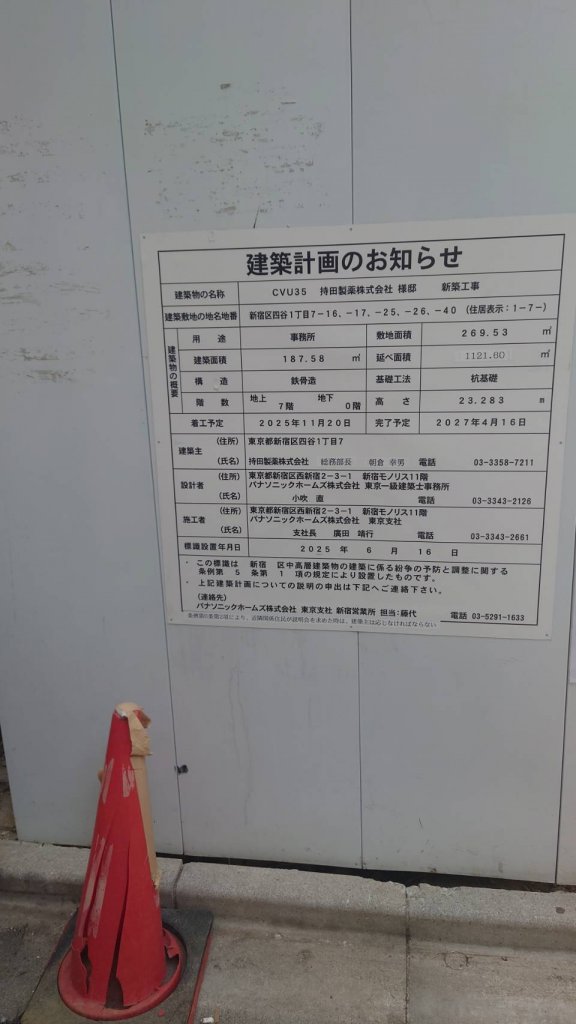 建築計画のお知らせ
建築物の名称 CVU35 持田製薬株式会社 様邸 新築工事
建築敷地の地名地番 新宿区四谷1丁目7-16、-17、-25、-26、-40 (住居表示:1-7-)
建築物の概要
用途 事務所 敷地面積 269.53 ㎡
建築面積 187.58 ㎡ 延べ面積 1121.60 ㎡
構造 鉄骨造 基礎工法 杭基礎
階数 地上 7階 地下 0階 高さ 23.283 m
着工予定 2025年11月20日 完了予定 2027年4月16日
建築主 (住所) 東京都新宿区四谷1丁目7
(氏名) 持田製薬株式会社 総務部長 朝倉 幸男 電話 03-3358-7211
設計者 (住所) 東京都新宿区西新宿2-3-1 新宿モノリス11階
パナソニックホームズ株式会社 東京一級建築士事務所
(氏名) 小吹 直 電話 03-3343-2126
施工者 (住所) 東京都新宿区西新宿2-3-1 新宿モノリス11階
パナソニックホームズ株式会社 東京支社
(氏名) 支社長 廣田 靖行 電話 03-3343-2661
標識設置年月日 2025 年 6 月 16 日
・ この標識は 新宿 区中高層建築物の建築に係る紛争の予防と調整に関する
条例第 5 条第 1 項の規定により設置したものです。
・ 上記建築計画についての説明の申出は下記へご連絡下さい。
(連絡先)
パナソニックホームズ株式会社 東京支社 新宿営業所 担当:藤代 電話 03-5291-1633
条例第6条第2項により、近隣関係住民が説明会を求めた時は、建築主は応じなければならない